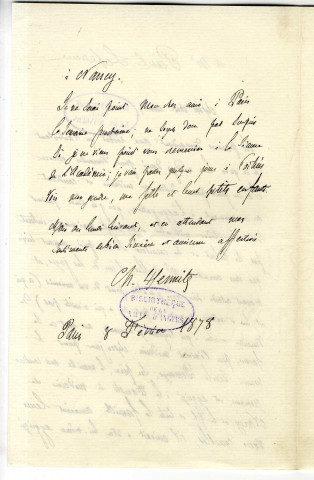 à Nancy.
Je ne serai point mon cher ami à Paris
la semaine prochaine; ne soyez donc pas surpris
si je ne viens point vous demander à la séance
de l'Académie; je vais passer quelques jours à
voir mon gendre, ma fille et leurs petits enfants
Après au lundi suivant, et en attendant mes
sentiments de bien sincère et ancienne affection
Ch. Hermite
BIBLIOTHÈQUE
DE LA
VILLE D'ANGERS
Paris 8 Février 1878